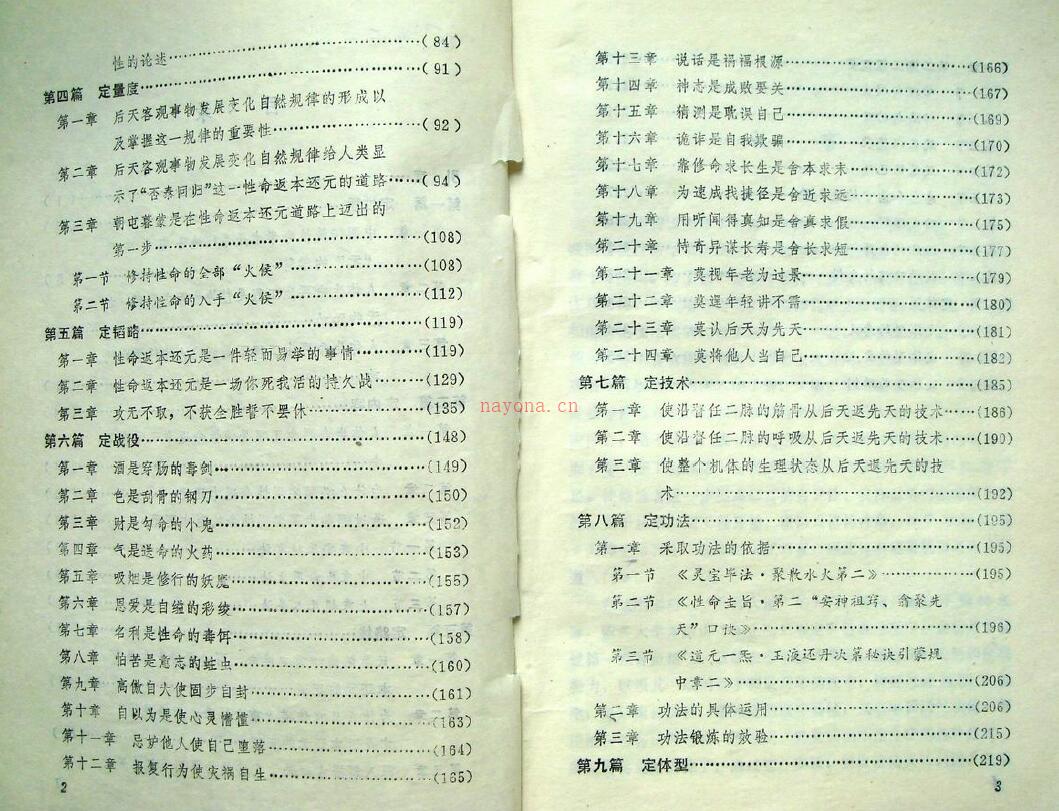 性的论述……(84)
第四篇 定量度……(91)
第一章 后天客观事物发展变化自然规律的形成以
及掌握这一规律的重要性……(92)
第二章 后天客观事物发展变化自然规律给人类显
示了“否泰同归”这一性命返本还元的道路……(94)
第三章 朝屯暮蒙是在性命返本还元道路上迈出的
第一步……(108)
第一节 修持性命的全部“火候”……(108)
第二节 修持性命的入手“火候”……(112)
第五篇 定韬略……(119)
第一章 性命返本还元是一件轻而易举的事情……(119)
第二章 性命返本还元是一场你死我活的持久战……(129)
第三章 攻无不取，不获全胜誓不罢休……(135)
第六篇 定战役……(148)
第一章 酒是穿肠的毒剑……(149)
第二章 色是刮骨的钢刀……(150)
第三章 财是勾命的小鬼……(152)
第四章 气是送命的火药……(153)
第五章 吸烟是修行的妖魔……(155)
第六章 恩爱是自缠的彩绫……(157)
第七章 名利是性命的毒饵……(158)
第八章 怕苦是意志的蛀虫……(160)
第九章 高傲自大使固步自封……(161)
第十章 自以为是使心灵懵懂……(163)
第十一章 忌妒他人使自己堕落……(164)
第十二章 报复行为使灾祸自生……(165)
2
第十三章 说话是祸福根源……(166)
第十四章 神志是成败要关……(167)
第十五章 猜测是耽误自己……(169)
第十六章 诡诈是自我欺骗……(170)
第十七章 靠修命求长生是舍本求末……(172)
第十八章 为速成找捷径是舍近求远……(173)
第十九章 用听闻得真知是舍真求假……(175)
第二十章 恃奇异谋长寿是舍长求短……(177)
第二十一章 莫视年老为过景……(179)
第二十二章 莫逞年轻讲不需……(180)
第二十三章 莫认后天为先天……(181)
第二十四章 莫将他人当自己……(182)
第七篇 定技术……(185)
第一章 使沿督任二脉的筋骨从后天返先天的技术……(186)
第二章 使沿督任二脉的呼吸从后天返先天的技术……(190)
第三章 使整个机体的生理状态从后天返先天的技
术……(192)
第八篇 定功法……(195)
第一章 采取功法的依据……(195)
第一节 《灵宝毕法·聚散水火第二》……(195)
第二节 《性命圭旨·第二“安神祖窍、翕聚先
天”口诀》……(196)
第三节 《道元一炁·玉液还丹次第秘诀引蒙规
中章二》……(206)
第二章 功法的具体运用……(206)
第三章 功法锻炼的效验……(215)
第九篇 定体型……(219)
3
nayona.cn